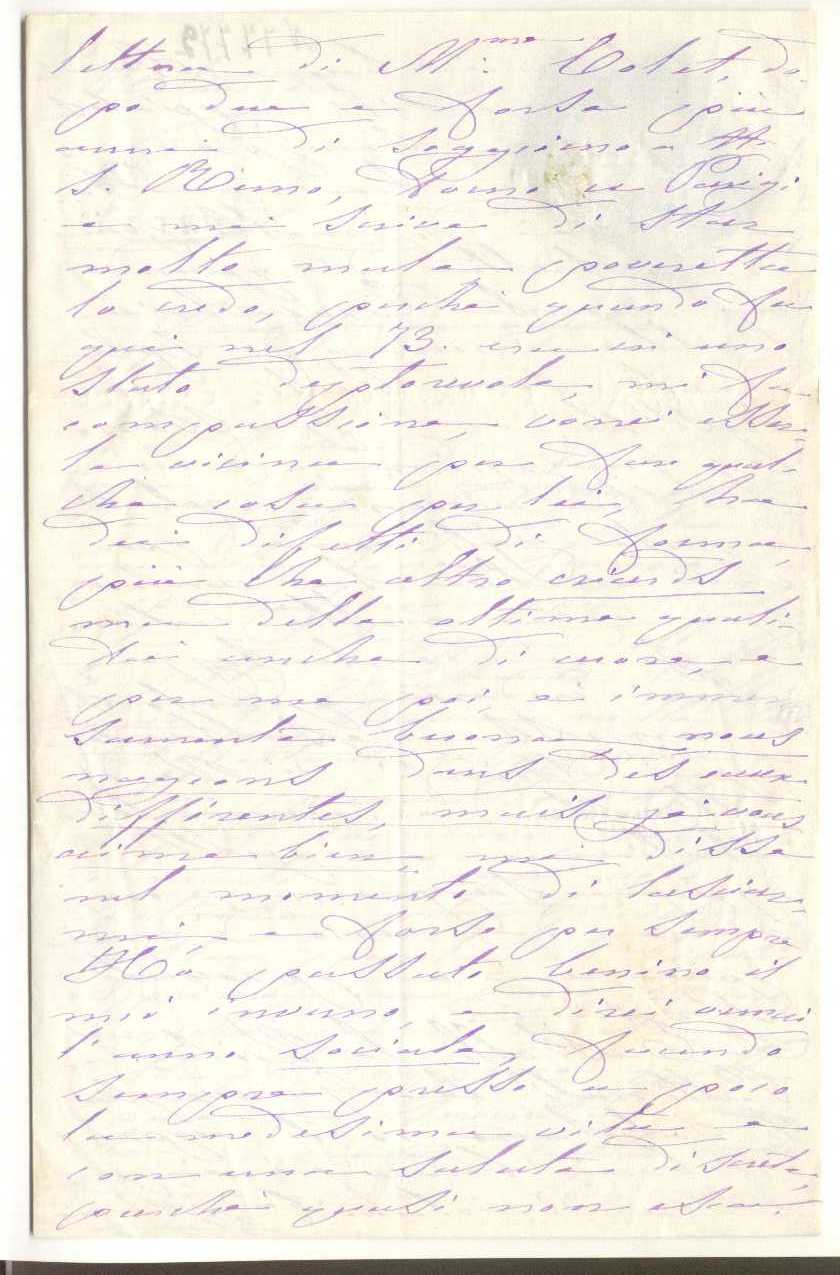 lettera di M.me Colet, do-
po due e forse più
anni di soggiorno a
S. Remo, torna a Parigi
e mi scrive di star
molto male poveretta
lo credo, perché quando fu
qui nel 73. era in uno
stato deplorevole, mi fa
compassione, vorrei esser-
le vicina per far qual-
che cosa per lei, ha
dei difetti di forma,
più che altro criards
ma delle ottime quali-
tà anche di cuore, e
per me poi, è immen
samente buona nous
nageons dans des eaux
différentes, mais je vous
aime bien, mi disse
nel momento di lasciar-
mi, e forse per sempre
Hò passato benino il
mio inverno, e direi ormai
l'anno sociale, facendo
sempre presso a poco
la medesima vita e
con una salute discreta,
perché quasi non esco